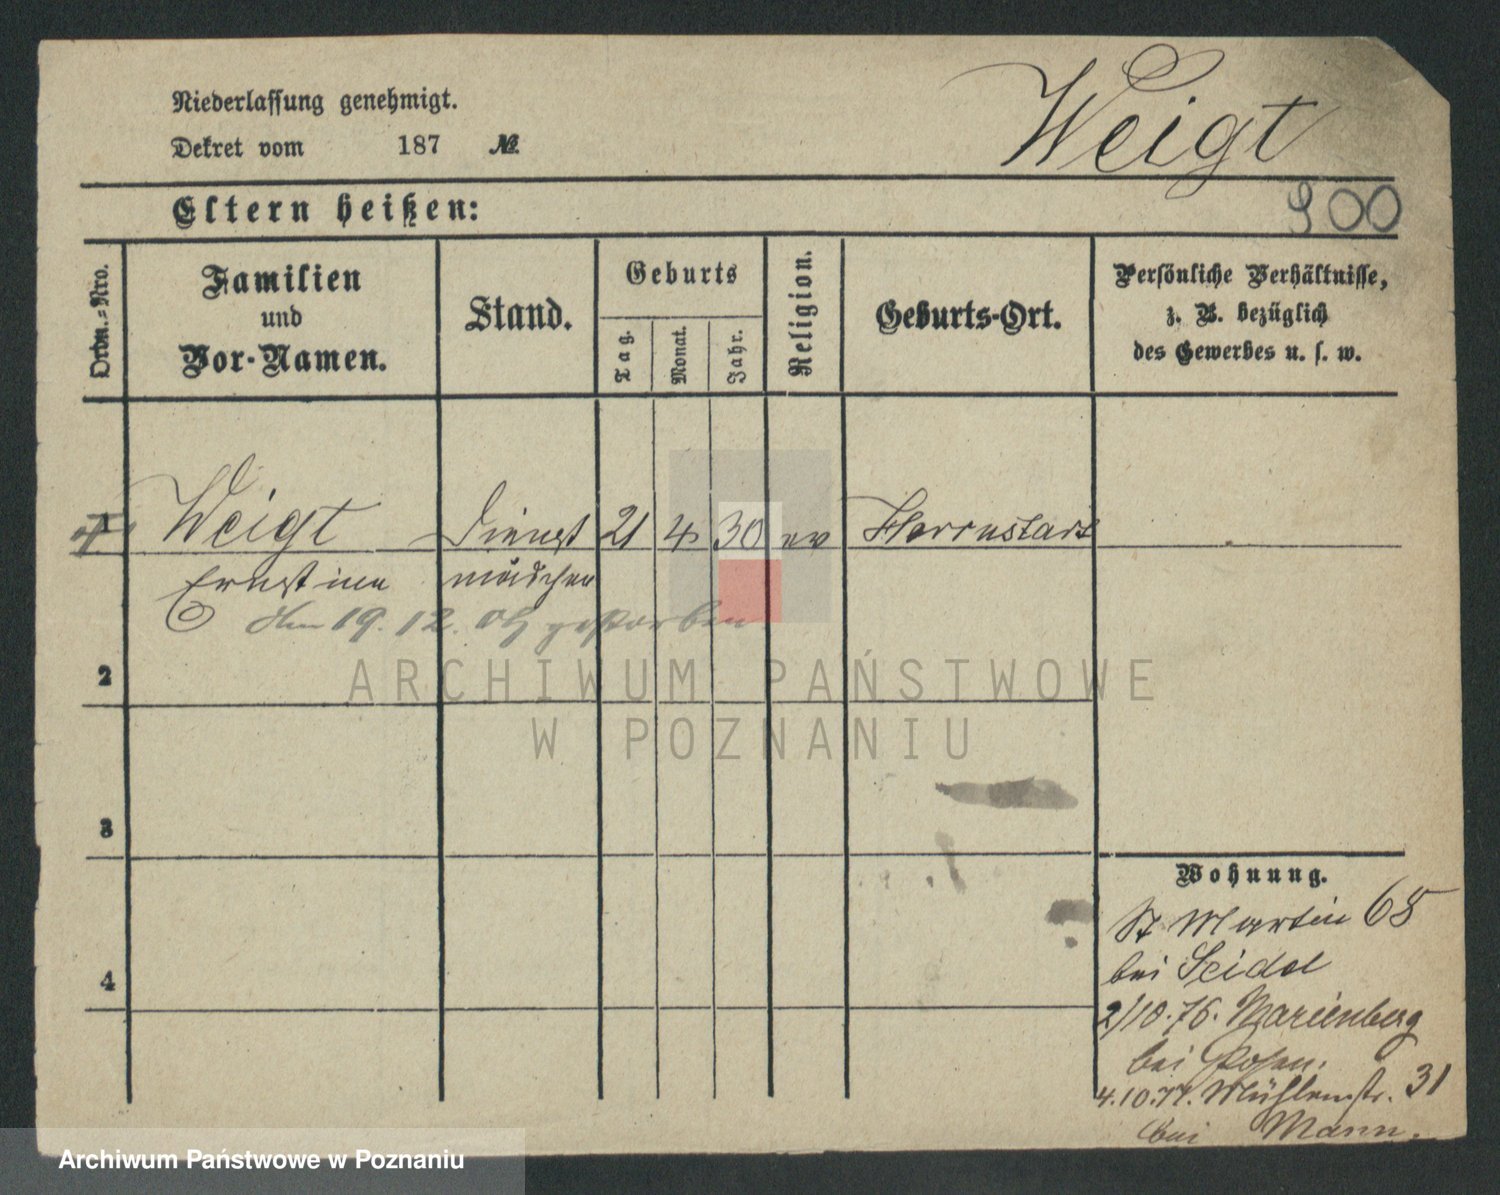 Niederlassung genehmigt.
Weigt
Dekret vom 187 №
900
Eltern heißen:
Ordn.=Nro.
Familien
und
Vor-Namen.
Stand.
Geburts
Tag.
Monat.
Jahr.
Religion.
Geburts-Ort.
Persönliche Verhältnisse,
z. B. bezüglich
des Gewerbes u. s. w.
1 Weigt Dienst 21 4 30 ev Herrnstadt
Ernestine mädchen
Am 19. 12. gestorben
2
3
4
Wohnung.
St Martin 68
bei Seidel
2/10.76. Marienberg
bei Posen.
4.10.77. Mühlenstr. 31
bei Mann.
ARCHIWUM PAŃSTWOWE
W POZNANIU
Archiwum Państwowe w Poznaniu